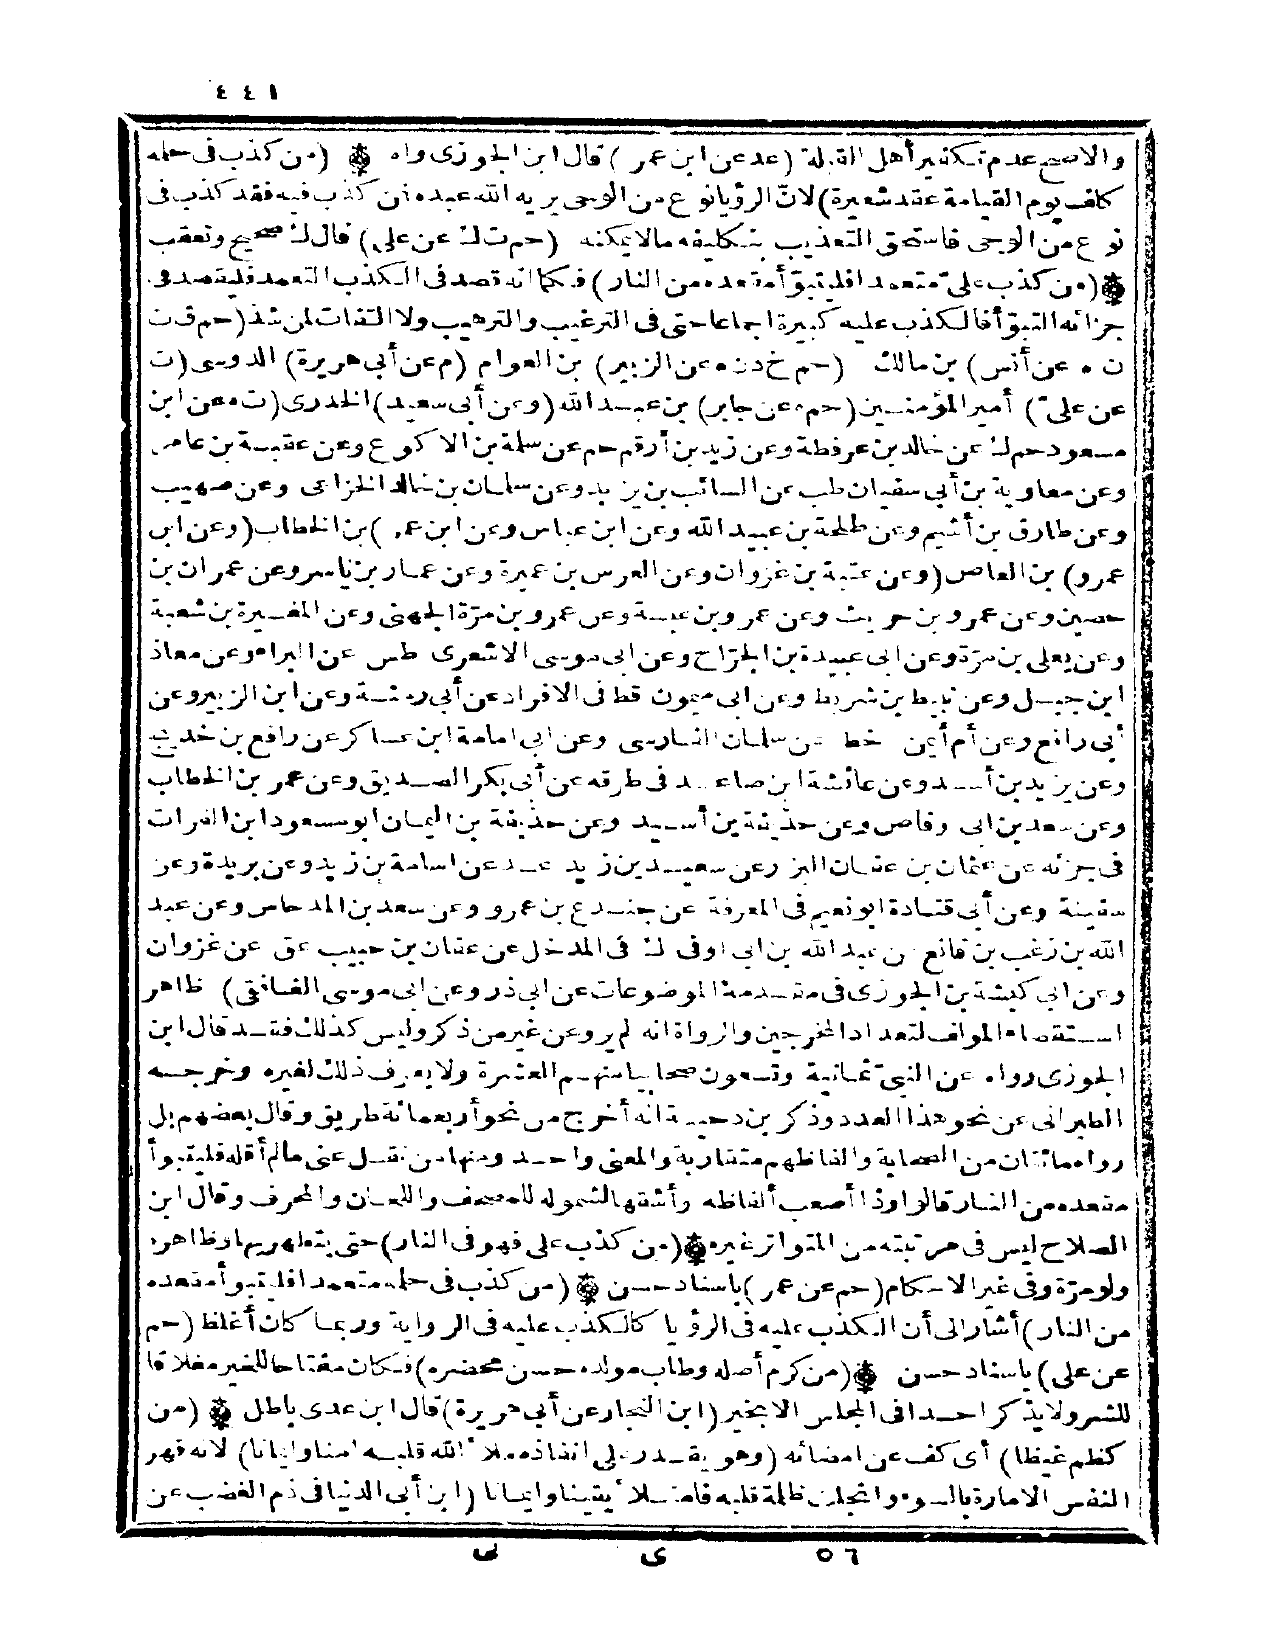 ٤٤١
والاصح عدم تكفير أهل القبلة (عد عن ابن عمر) قال ابن الجوزى واه (من كذب فى حلمه
كلف يوم القيامة عقد شعيرة) لان الرؤيا نوع من الوحى يريه الله عبده فن كذب فيه فقد كذب فى
نوع من الوحى فاستحق التعذيب بتكليفه مالا يمكنه (حم ت ك عن على) قال ك صحيح وتعقب
(من كذب على متعمدا فليتبوّأ مقعده من النار) فكما انه قصد فى الكذب التعمد فليقصد فى
جزائه التبوّأ فالكذب عليه كبيرة اجماعا حتى فى الترغيب والترهيب ولا التفات لمن شذ (حم ق ت
ن ه عن أنس) بن مالك (حم خ د ن ه عن الزبير) بن العوام (م عن أبى هريرة) الدوسى (ت
عن على) أمير المؤمنين (حم ه عن جابر) بن عبد الله (وعن أبى سعيد) الخدرى (ت ه عن ابن
مسعود حم ك عن خالد بن عرفطة وعن زيد بن أرقم حم عن سلمة بن الاكوع وعن عقبة بن عامر
وعن معاوية بن أبى سفيان طب عن السائب بن يزيد وعن سلمان بن خالد الخزاعى وعن صهيب
وعن طارق بن أشيم وعن طلحة بن عبيد الله وعن ابن عباس وعن ابن عمر) بن الخطاب (وعن ابن
عمرو) بن العاص (وعن عتبة بن غزوان وعن العرس بن عميرة وعن عمار بن ياسر وعن عمران بن
حصين وعن عمرو بن حريث وعن عمرو بن عبسة وعن عمرو بن مرّة الجهنى وعن المغيرة بن شعبة
وعن يعلى بن مرّة وعن ابى عبيدة بن الجرّاح وعن ابى موسى الاشعرى طس عن البراء وعن معاذ
ابن جبل وعن نبيط بن شريط وعن ابى ميمون قط فى الافراد عن أبى رمثة وعن ابن الزبير وعن
أبى رافع وعن أم أيمن خط عن سلمان الفارسى وعن ابى امامة ابن عساكر عن رافع بن خديج
وعن يزيد بن أسد وعن عائشة ابن صاعد فى طرقه عن أبى بكر الصديق وعن عمر بن الخطاب
وعن سعد بن ابى وقاص وعن حذيفة بن أسيد وعن حذيفة بن اليمان ابو مسعود ابن الفرات
فى جزئه عن عثمان بن عفان البزار وعن سعيد بن زيد عد عن اسامة بن زيد وعن بريدة وعن
سفينة وعن أبى قتادة ابو نعيم فى المعرفة عن جندع بن عمرو وعن سعد بن المدحاس وعن عبد
الله بن زغب بن قانع عن عبد الله بن ابى اوفى ك فى المدخل عن عفان بن حبيب عق عن غزوان
وعن ابى كبشة بن الجوزى فى مقدمة الموضوعات عن ابى ذر وعن ابى موسى الغافقى) ظاهر
استقصاء المؤلف لتعداد المخرجين والرواة انه لم يرو عن غير من ذكر وليس كذلك فقد قال ابن
الجوزى رواه عن النبىّ ثمانية وتسعون صحابيا منهم العشرة ولا يعرف ذلك لغيره وخرجه
الطبرانى عن نحو هذا العدد وذكر بن دحية انه أخرج من نحو أربعمائة طريق وقال بعضهم بل
رواه مائتان من الصحابة والفاظهم متقاربة والمعنى واحد ومنها من نقل عنى مالم أقله فليتبوأ
مقعده من النار قالوا وذا أصعب ألفاظه وأشقها لشموله للمصحف واللحان والمحرف وقال ابن
الصلاح ليس فى مرتبته من المتواتر غيره (من كذب على فهو فى النار) حتى يتطهر بها وظاهره
ولو مرّة وفى غير الاحكام (حم عن عمر) باسناد حسن (من كذب فى حلمه متعمدا فليتبوأ مقعده
من النار) أشار الى أن الكذب عليه فى الرؤيا كالكذب عليه فى الرواية وربما كان أغلظ (حم
عن على) باسناد حسن (من كرم أصله وطاب مولده حسن محضره) فكان مفتاحا للخير مغلاقا
للشر ولا يذكر احدا فى المجلس الا بخير (ابن النجار عن أبى هريرة) قال ابن عدى باطل (من
كظم غيظا) أى كف عن امضائه (وهو يقدر على انفاذه ملأ الله قلبه امنا وايمانا) لانه قهر
النفس الامارة بالسوء وانجلت ظلمة قلبه فامتلأ يقينا وايمانا (ابن أبى الدنيا فى ذم الغضب عن
٥٦ ى